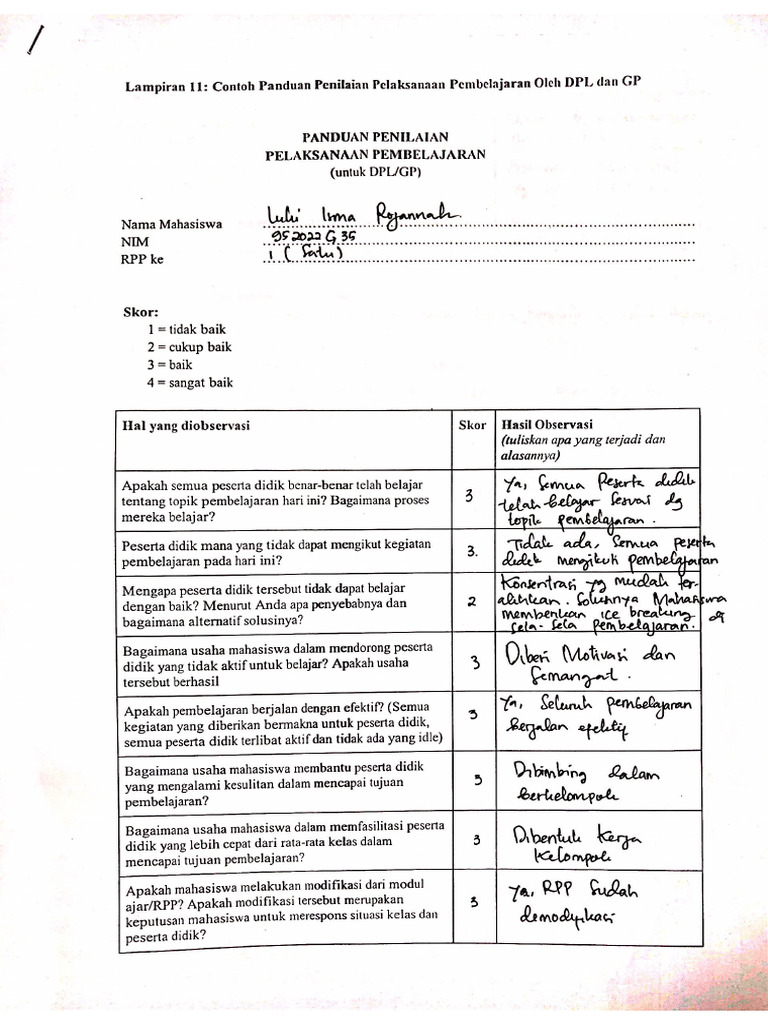 /
Lampiran 11: Contoh Panduan Penilaian Pelaksanaan Pembelajaran Oleh DPL dan GP
PANDUAN PENILAIAN
PELAKSANAAN PEMBELAJARAN
(untuk DPL/GP)
Nama Mahasiswa Irma Rojannah
NIM 952022 G 35
RPP ke 1 (Satu)
Skor:
1 = tidak baik
2 = cukup baik
3 = baik
4 = sangat baik
Hal yang diobservasi
Skor
Hasil Observasi
(tuliskan apa yang terjadi dan
alasannya)
Apakah semua peserta didik benar-benar telah belajar
tentang topik pembelajaran hari ini? Bagaimana proses
mereka belajar?
3
Ya, Semua Peserta didik
telah belajar sesuai dg
topik pembelajaran.
Peserta didik mana yang tidak dapat mengikut kegiatan
pembelajaran pada hari ini?
3.
Tidak ada, Semua peserta
didik mengikuti pembelajaran
Mengapa peserta didik tersebut tidak dapat belajar
dengan baik? Menurut Anda apa penyebabnya dan
bagaimana alternatif solusinya?
2
Konsentrasi yg mudah ter-
alihkan. Solusinya Mahasiswa
memberikan ice breaking dg
sela-sela pembelajaran.
Bagaimana usaha mahasiswa dalam mendorong peserta
didik yang tidak aktif untuk belajar? Apakah usaha
tersebut berhasil
3
Diberi Motivasi dan
Semangat.
Apakah pembelajaran berjalan dengan efektif? (Semua
kegiatan yang diberikan bermakna untuk peserta didik,
semua peserta didik terlibat aktif dan tidak ada yang idle)
3
Ya, Seluruh pembelajaran
berjalan efektif
Bagaimana usaha mahasiswa membantu peserta didik
yang mengalami kesulitan dalam mencapai tujuan
pembelajaran?
3
Dibimbing dalam
berkelompok
Bagaimana usaha mahasiswa dalam memfasilitasi peserta
didik yang lebih cepat dari rata-rata kelas dalam
mencapai tujuan pembelajaran?
3
Dibentuk Kerja
Kelompok
Apakah mahasiswa melakukan modifikasi dari modul
ajar/RPP? Apakah modifikasi tersebut merupakan
keputusan mahasiswa untuk merespons situasi kelas dan
peserta didik?
3
Ya, RPP Sudah
demodifikasi